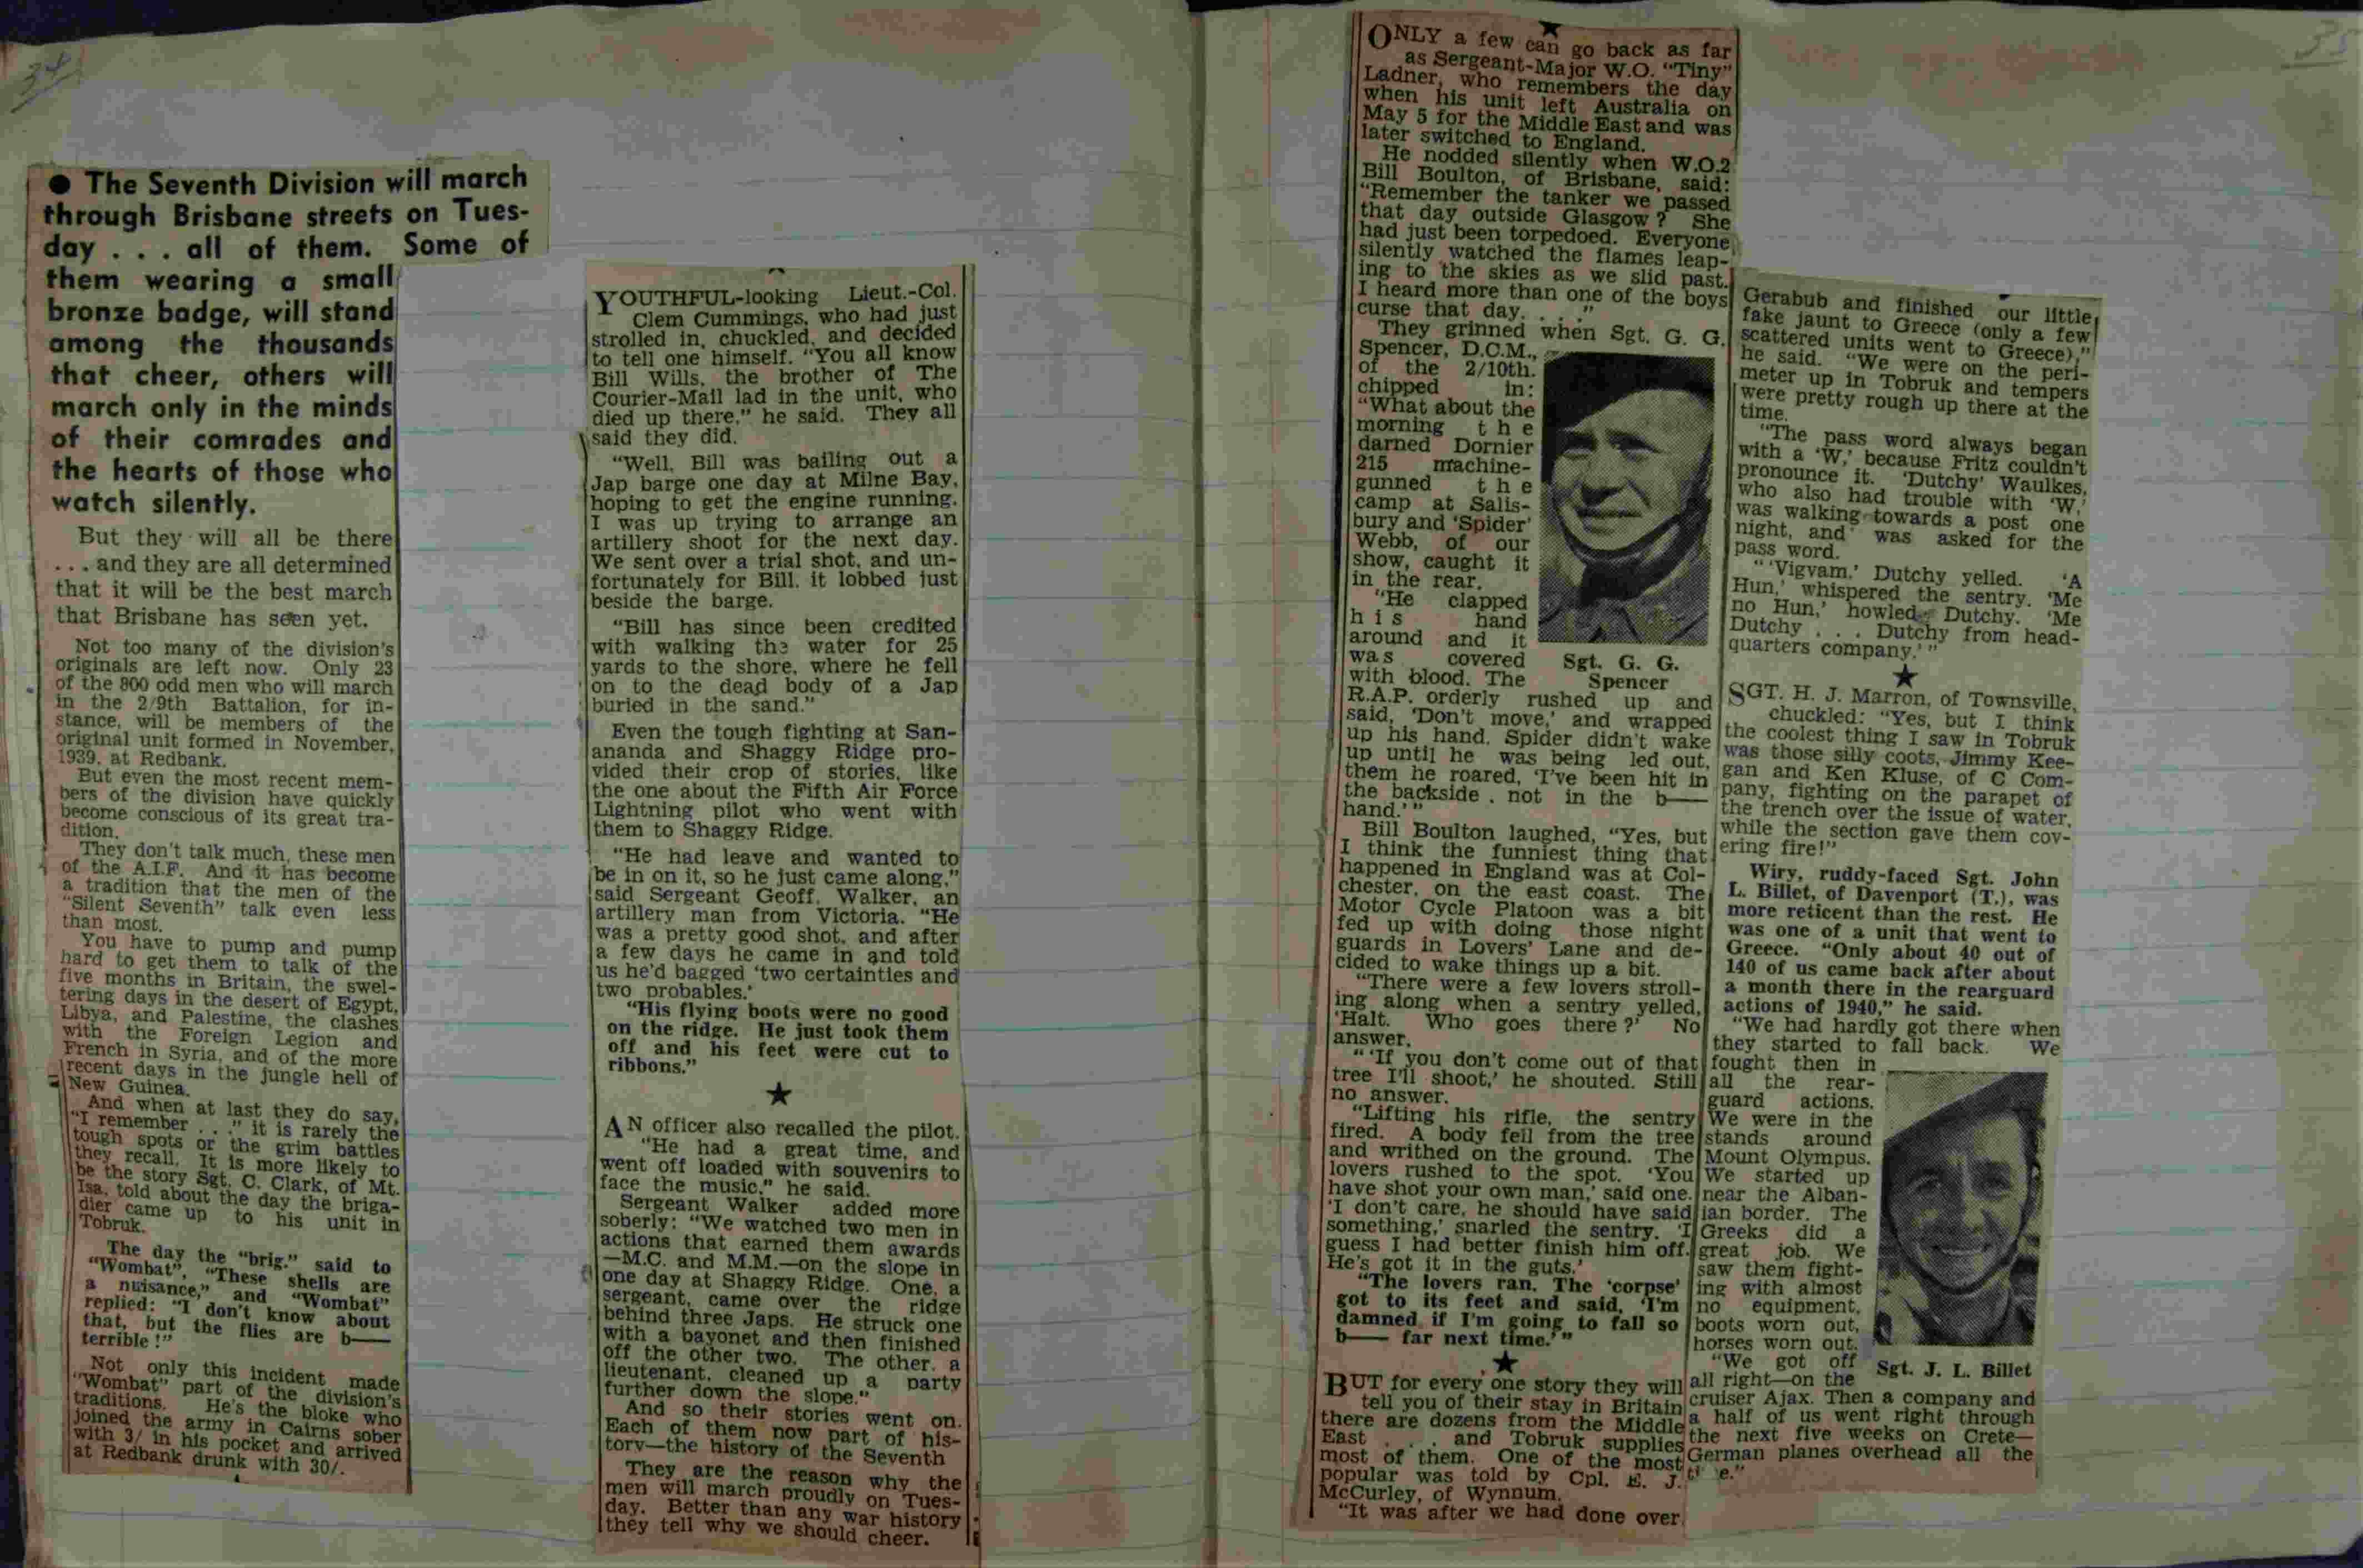 34
● The Seventh Division will march
through Brisbane streets on Tues-
day . . . all of them. Some of
them wearing a small
bronze badge, will stand
among the thousands
that cheer, others will
march only in the minds
of their comrades and
the hearts of those who
watch silently.
But they will all be there
. . . and they are all determined
that it will be the best march
that Brisbane has seen yet.
Not too many of the division's
originals are left now. Only 23
of the 800 odd men who will march
in the 2/9th Battalion, for in-
stance, will be members of the
original unit formed in November,
1939, at Redbank.
But even the most recent mem-
bers of the division have quickly
become conscious of its great tra-
dition.
They don't talk much, these men
of the A.I.F. And it has become
a tradition that the men of the
"Silent Seventh" talk even less
than most.
You have to pump and pump
hard to get them to talk of the
five months in Britain, the swel-
tering days in the desert of Egypt,
Libya, and Palestine, the clashes
with the Foreign Legion and
French in Syria, and of the more
recent days in the jungle hell of
New Guinea.
And when at last they do say,
"I remember . . ." it is rarely the
tough spots or the grim battles
they recall. It is more likely to
be the story Sgt. C. Clark, of Mt.
Isa, told about the day the briga-
dier came up to his unit in
Tobruk.
The day the "brig." said to
"Wombat", "These shells are
a nuisance," and "Wombat"
replied: "I don't know about
that, but the flies are b——
terrible!"
Not only this incident made
"Wombat" part of the division's
traditions. He's the bloke who
joined the army in Cairns sober
with 3/ in his pocket and arrived
at Redbank drunk with 30/.
YOUTHFUL-looking Lieut.-Col.
Clem Cummings, who had just
strolled in, chuckled, and decided
to tell one himself. "You all know
Bill Wills, the brother of The
Courier-Mail lad in the unit, who
died up there," he said. They all
said they did.
"Well, Bill was bailing out a
Jap barge one day at Milne Bay,
hoping to get the engine running.
I was up trying to arrange an
artillery shoot for the next day.
We sent over a trial shot, and un-
fortunately for Bill, it lobbed just
beside the barge.
"Bill has since been credited
with walking the water for 25
yards to the shore, where he fell
on to the dead body of a Jap
buried in the sand."
Even the tough fighting at San-
ananda and Shaggy Ridge pro-
vided their crop of stories, like
the one about the Fifth Air Force
Lightning pilot who went with
them to Shaggy Ridge.
"He had leave and wanted to
be in on it, so he just came along,"
said Sergeant Geoff. Walker, an
artillery man from Victoria. "He
was a pretty good shot, and after
a few days he came in and told
us he'd bagged 'two certainties and
two probables.'
"His flying boots were no good
on the ridge. He just took them
off and his feet were cut to
ribbons."
★
AN officer also recalled the pilot.
"He had a great time, and
went off loaded with souvenirs to
face the music," he said.
Sergeant Walker added more
soberly: "We watched two men in
actions that earned them awards
—M.C. and M.M.—on the slope in
one day at Shaggy Ridge. One, a
sergeant, came over the ridge
behind three Japs. He struck one
with a bayonet and then finished
off the other two. The other, a
lieutenant, cleaned up a party
further down the slope."
And so their stories went on.
Each of them now part of his-
tory—the history of the Seventh
They are the reason why the
men will march proudly on Tues-
day. Better than any war history
they tell why we should cheer.
35
★
ONLY a few can go back as far
as Sergeant-Major W.O. "Tiny"
Ladner, who remembers the day
when his unit left Australia on
May 5 for the Middle East and was
later switched to England.
He nodded silently when W.O.2
Bill Boulton, of Brisbane, said:
"Remember the tanker we passed
that day outside Glasgow? She
had just been torpedoed. Everyone
silently watched the flames leap-
ing to the skies as we slid past.
I heard more than one of the boys
curse that day. . . ."
They grinned when Sgt. G. G.
Spencer, D.C.M.,
of the 2/10th.
chipped in:
"What about the
morning the
darned Dornier
215 machine-
gunned the
camp at Salis-
bury and 'Spider'
Webb, of our
show, caught it
in the rear.
"He clapped
his hand
around and it
was covered
with blood. The
Sgt. G. G.
Spencer
R.A.P. orderly rushed up and
said, 'Don't move,' and wrapped
up his hand. Spider didn't wake
up until he was being led out,
them he roared, 'I've been hit in
the backside . not in the b——
hand.'"
Bill Boulton laughed, "Yes, but
I think the funniest thing that
happened in England was at Col-
chester, on the east coast. The
Motor Cycle Platoon was a bit
fed up with doing those night
guards in Lovers' Lane and de-
cided to wake things up a bit.
"There were a few lovers stroll-
ing along when a sentry yelled,
'Halt. Who goes there?' No
answer.
"'If you don't come out of that
tree I'll shoot,' he shouted. Still
no answer.
"Lifting his rifle, the sentry
fired. A body fell from the tree
and writhed on the ground. The
lovers rushed to the spot. 'You
have shot your own man,' said one.
'I don't care, he should have said
something,' snarled the sentry. 'I
guess I had better finish him off.
He's got it in the guts.'
"The lovers ran. The 'corpse'
got to its feet and said, 'I'm
damned if I'm going to fall so
b—— far next time.'"
★
BUT for every one story they will
tell you of their stay in Britain
there are dozens from the Middle
East . . . and Tobruk supplies
most of them. One of the most
popular was told by Cpl. E. J.
McCurley, of Wynnum.
"It was after we had done over
Gerabub and finished our little
fake jaunt to Greece (only a few
scattered units went to Greece),"
he said. "We were on the peri-
meter up in Tobruk and tempers
were pretty rough up there at the
time.
"The pass word always began
with a 'W,' because Fritz couldn't
pronounce it. 'Dutchy' Waulkes,
who also had trouble with 'W,'
was walking towards a post one
night, and was asked for the
pass word.
"'Vigvam,' Dutchy yelled. 'A
Hun,' whispered the sentry. 'Me
no Hun,' howled Dutchy. 'Me
Dutchy . . . Dutchy from head-
quarters company.'"
★
SGT. H. J. Marron, of Townsville,
chuckled: "Yes, but I think
the coolest thing I saw in Tobruk
was those silly coots, Jimmy Kee-
gan and Ken Kluse, of C Com-
pany, fighting on the parapet of
the trench over the issue of water,
while the section gave them cov-
ering fire!"
Wiry, ruddy-faced Sgt. John
L. Billet, of Davenport (T.), was
more reticent than the rest. He
was one of a unit that went to
Greece. "Only about 40 out of
140 of us came back after about
a month there in the rearguard
actions of 1940," he said.
"We had hardly got there when
they started to fall back. We
fought then in
all the rear-
guard actions.
We were in the
stands around
Mount Olympus.
We started up
near the Alban-
ian border. The
Greeks did a
great job. We
saw them fight-
ing with almost
no equipment,
boots worn out,
horses worn out.
"We got off
all right—on the
Sgt. J. L. Billet
cruiser Ajax. Then a company and
a half of us went right through
the next five weeks on Crete—
German planes overhead all the